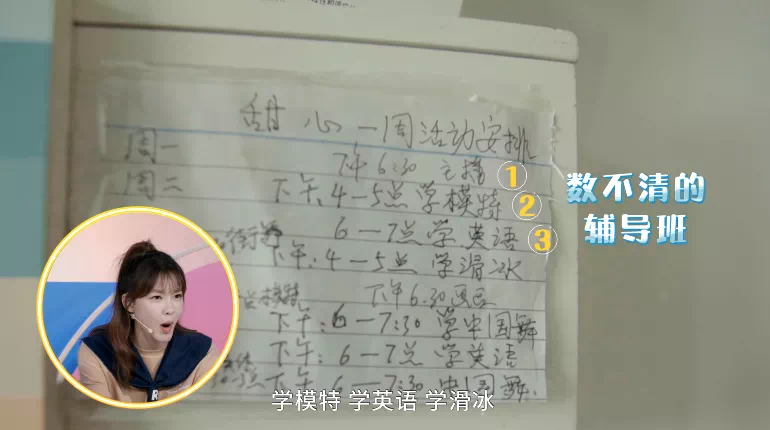 甜心一周活动安排
周一
下午6:30 主持 1
周二 下午:4—5点学模特 2
6—7点学英语 3
下午:4—5点 学滑冰
下午6:30画画
下午:6—7:30 学中国舞
下午:6—7点 学英语
下午 6—7:30 中国舞
数不清的
辅导班
R
学模特 学英语 学滑冰